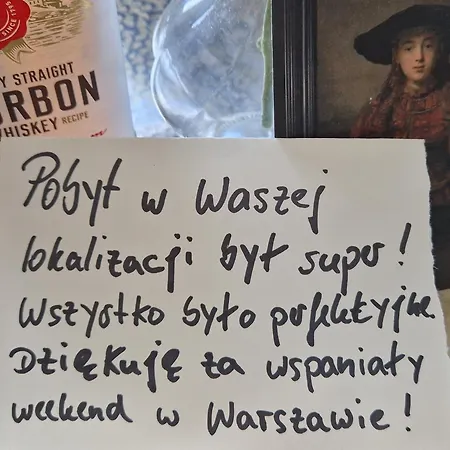 SINCE 1795
Y STRAIGHT
URBON
WHISKEY RECIPE
Pobyt w Waszej
lokalizacji był super!
Wszystko było perfekcyjne.
Dziękuję za wspaniały
weekend w Warszawie!